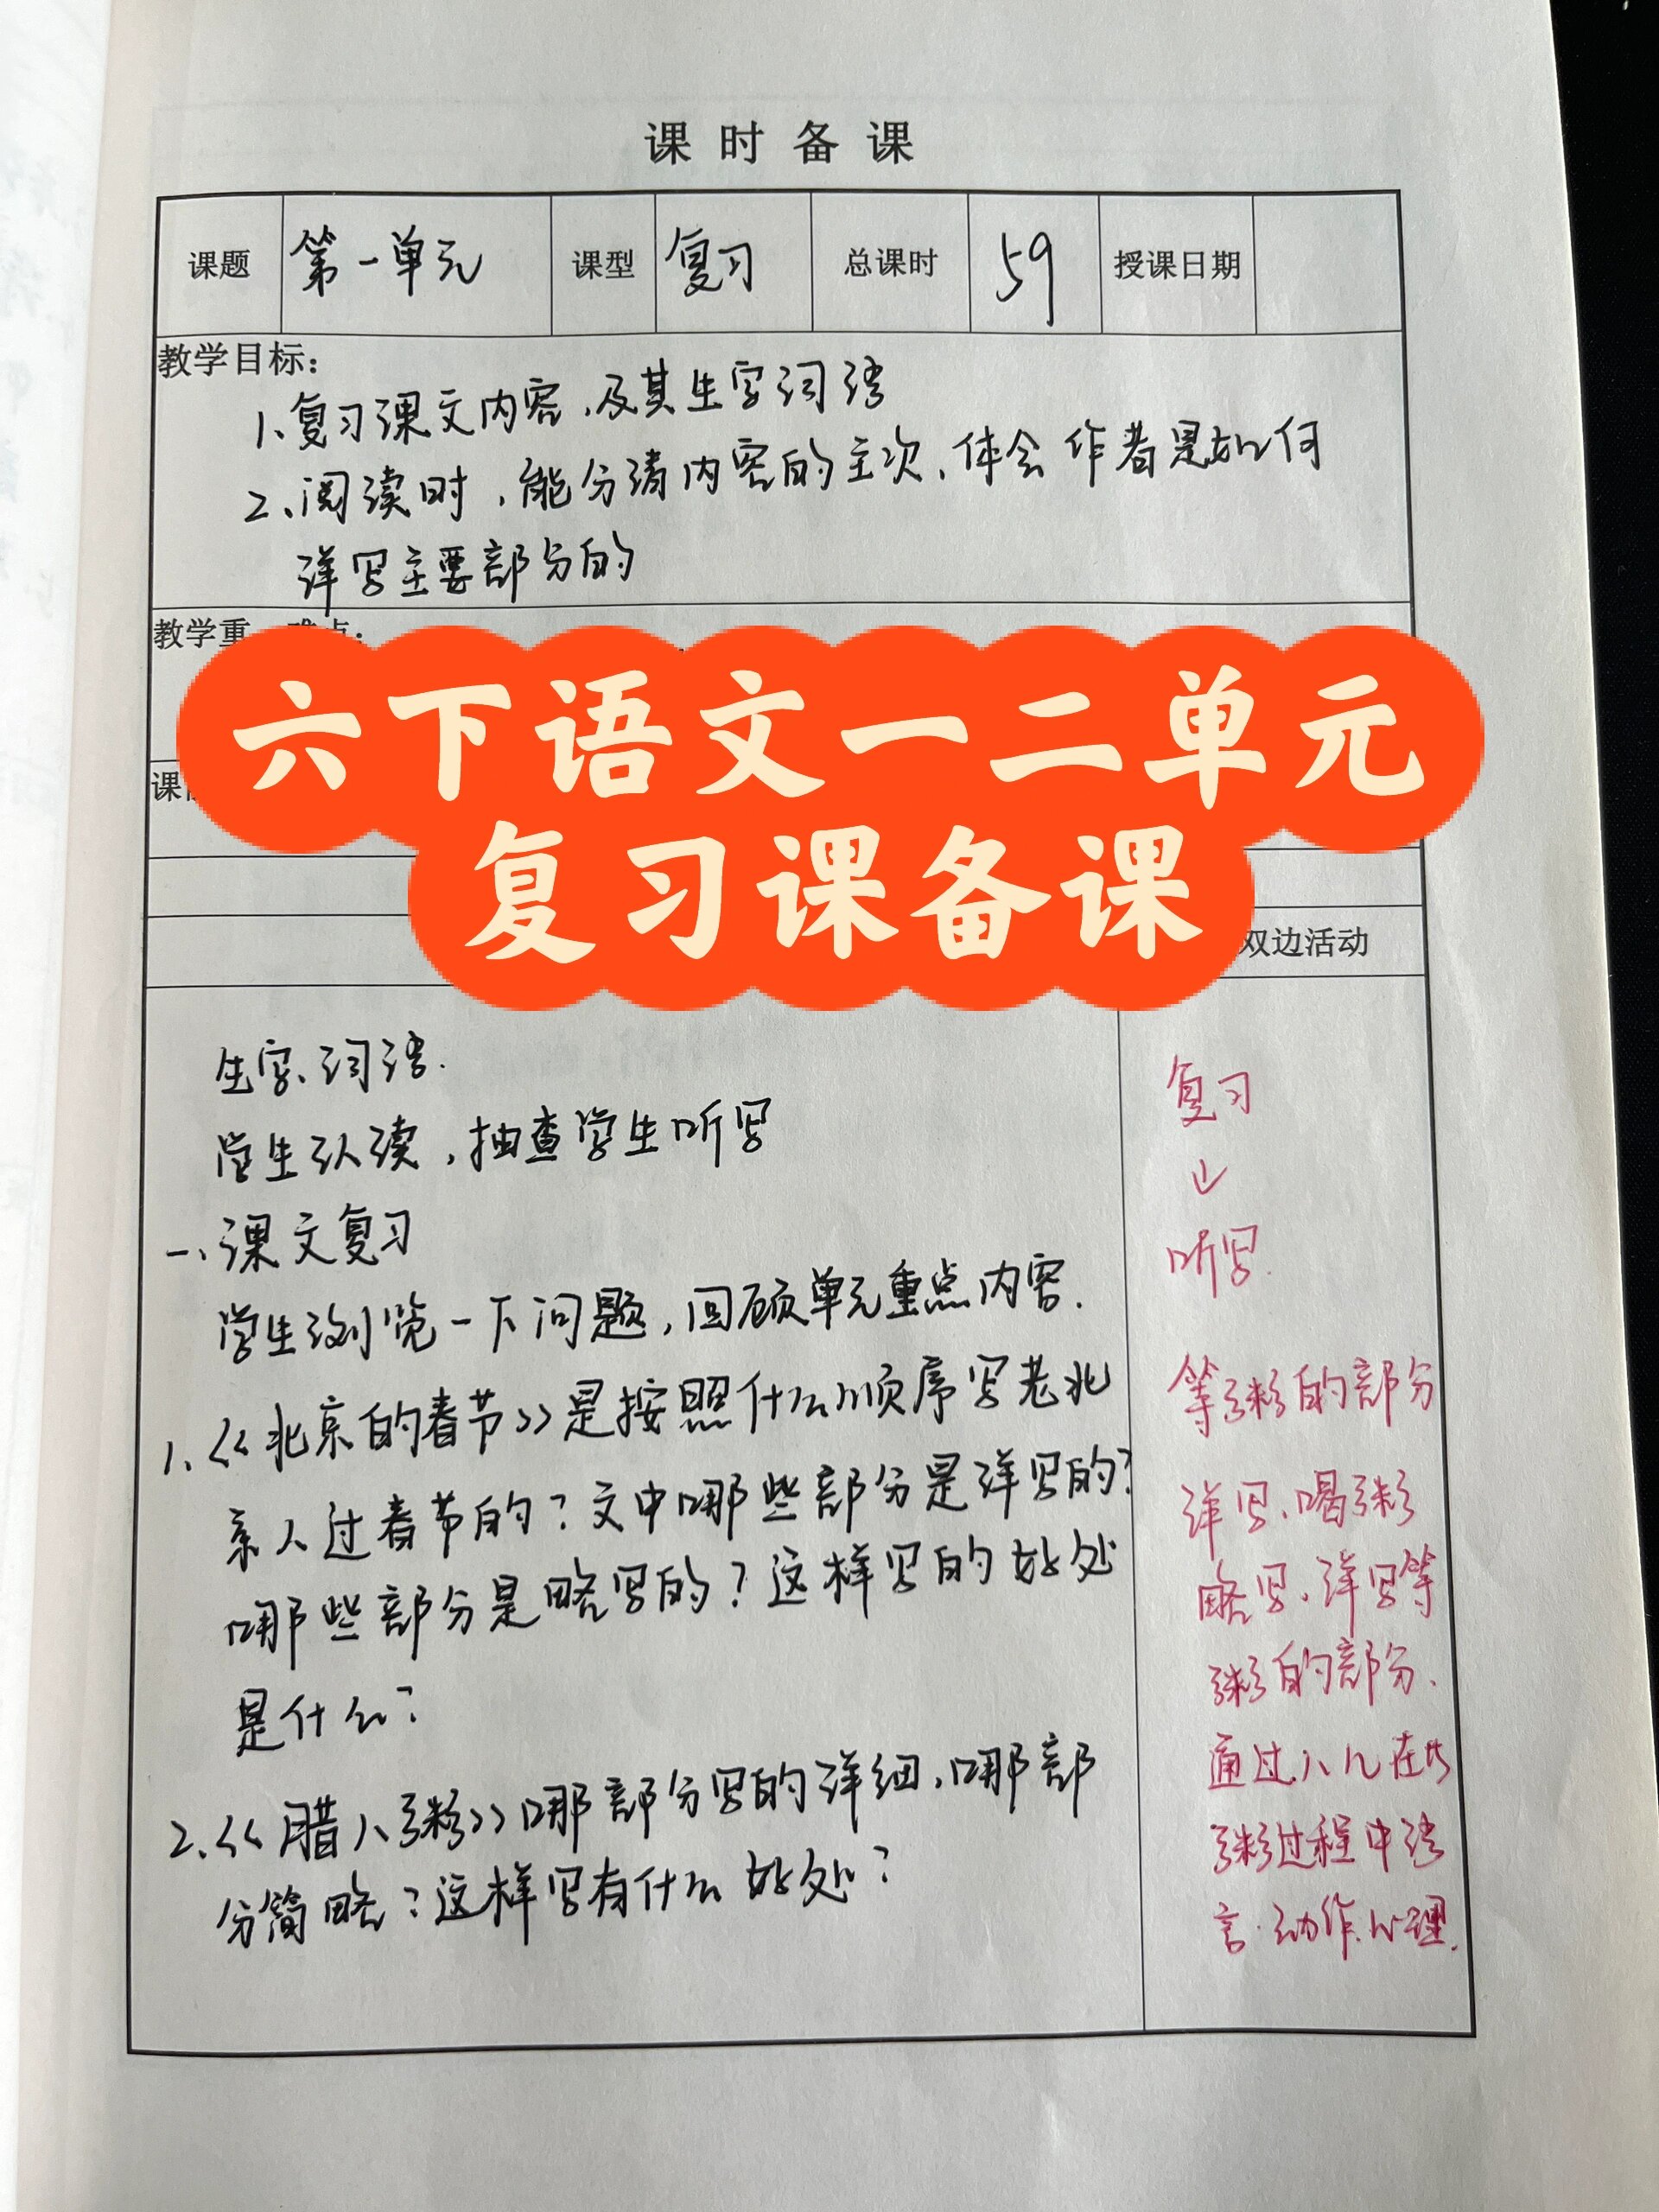 课时备课
课题 第一单元 课型 复习 总课时 59 授课日期
教学目标：
1、复习课文内容，及其生字词语
2、阅读时，能分清内容的主次，体会作者是如何
详写主要部分的
教学重
六下语文一二单元
课
复习课备课
双边活动
生字、词语.
学生认读，抽查学生听写
一、课文复习
学生浏览一下问题，回顾单元重点内容.
1、《北京的春节》是按照什么顺序写老北
京人过春节的？文中哪些部分是详写的？
哪些部分是略写的？这样写的好处
是什么？
2、《腊八粥》哪部分写的详细，哪部
分简略？这样写有什么好处？
复习
↓
听写.
等粥的部分
详写、喝粥
略写、详写等
粥的部分、
通过八儿在
粥过程中语
言、动作、心理.